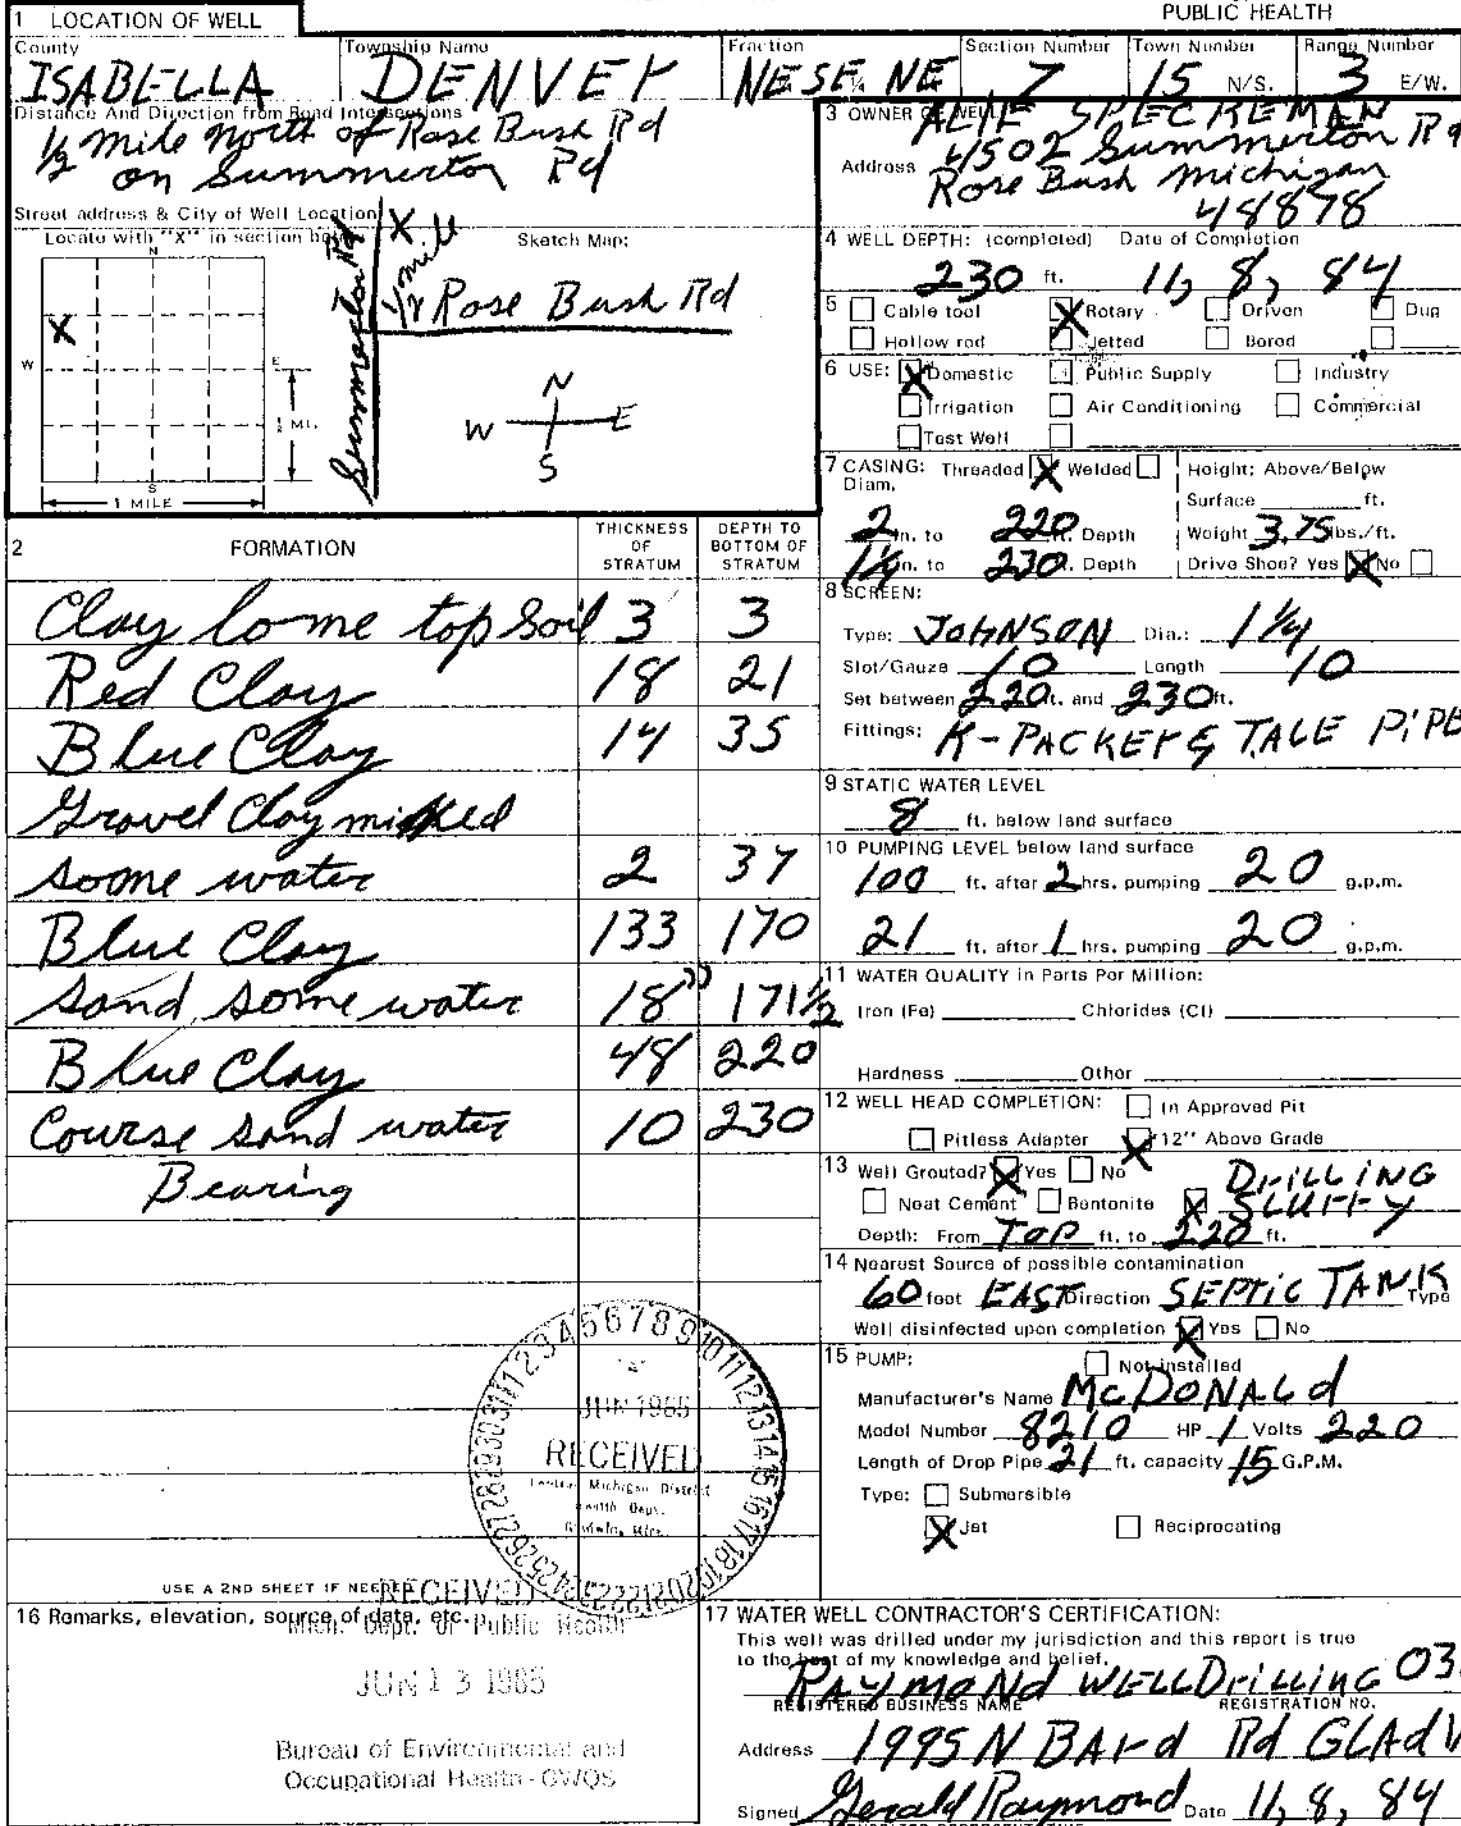 PUBLIC HEALTH
1 LOCATION OF WELL
County
ISABELLA
Township Name
DENVEr
Fraction
NE SE ¼ NE
Section Number
7
Town Number
15 N/S.
Range Number
3 E/W.
Distance And Direction from Road Intersections
1/2 mile north of Rose Bush Rd
on Summerton Rd
Street address & City of Well Location
Locate with "X" in section below
Sketch Map:
N
W
E
S
X
½ MI.
1 MILE
Summerton Rd
X
1/2 mile
Rose Bush Rd
Summerton
N
W E
S
3 OWNER OF WELL:
ALIE SPECKEMAN
Address 4502 Summerton Rd
Rose Bush Michigan
48878
4 WELL DEPTH: (completed) Date of Completion
230 ft. 11, 8, 84
5 Cable tool Rotary Driven Dug
Hollow rod Jetted Bored
6 USE: Domestic Public Supply Industry
Irrigation Air Conditioning Commercial
Test Well
7 CASING: Threaded Welded
Diam.
Height: Above/Below
Surface ft.
2 in. to 220 ft. Depth
Weight 3.75 lbs./ft.
1¼ in. to 230 ft. Depth
Drive Shoe? Yes No
8 SCREEN:
Type: JOHNSON Dia.: 1 1/4
Slot/Gauze 10 Length 10
Set between 220 ft. and 230 ft.
Fittings: K-PACKEr & TALE PiPE
9 STATIC WATER LEVEL
8 ft. below land surface
10 PUMPING LEVEL below land surface
100 ft. after 2 hrs. pumping 20 g.p.m.
21 ft. after 1 hrs. pumping 20 g.p.m.
11 WATER QUALITY in Parts Per Million:
Iron (Fe) Chlorides (Cl)
Hardness Other
12 WELL HEAD COMPLETION: In Approved Pit
Pitless Adapter 12" Above Grade
13 Well Grouted? Yes No
Neat Cement Bentonite DrILLiNG
SLUrrY
Depth: From TOP ft. to 220 ft.
14 Nearest Source of possible contamination
60 feet EAST Direction SEPTiC TANK Type
Well disinfected upon completion Yes No
15 PUMP: Not installed
Manufacturer's Name McDONALd
Model Number 8210 HP 1 Volts 220
Length of Drop Pipe 21 ft. capacity 15 G.P.M.
Type: Submersible
Jet Reciprocating
2 FORMATION
THICKNESS OF STRATUM
DEPTH TO BOTTOM OF STRATUM
Clay lome top Soil 3 3
Red Clay 18 21
Blue Clay 14 35
Gravel Clay mixed
some water 2 37
Blue Clay 133 170
Sand, some water 18" 171½
Blue Clay 48 220
Course sand water 10 230
Bearing
JUN 1985
RECEIVED
Central Michigan District
Health Dept.
USE A 2ND SHEET IF NEEDED
RECEIVED
Mich. Dept. of Public Health
JUN 13 1985
Bureau of Environmental and
Occupational Health - GWQS
16 Remarks, elevation, source of data, etc.
17 WATER WELL CONTRACTOR'S CERTIFICATION:
This well was drilled under my jurisdiction and this report is true
to the best of my knowledge and belief.
RAYMONd WELL DriLLiNG 03
REGISTERED BUSINESS NAME REGISTRATION NO.
Address 1995 N BArd Rd GLAdW
Signed Gerald Raymond Date 11, 8, 84